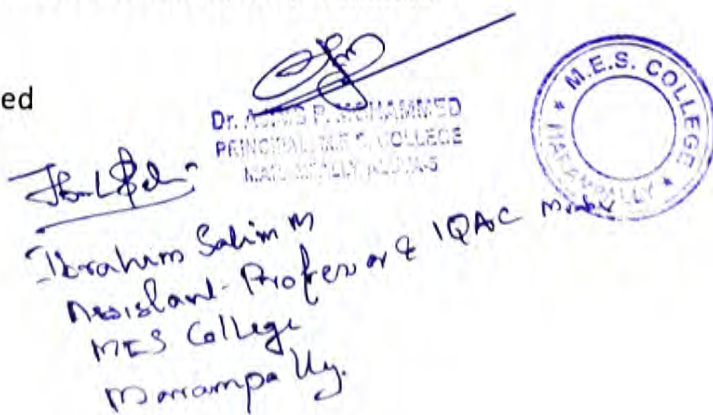 ed
Dr. P. MOHAMMED
PRINCIPAL, M.E.S. COLLEGE
M.E.S. COLLEGE
MARAMPALLY
Ibrahim Salim M
Assistant-Professor & IQAC
MES College
Marampally.